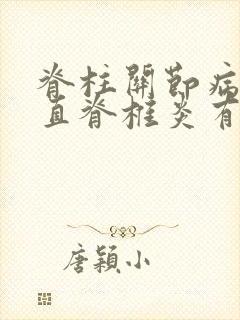 脊柱關節病
直脊椎炎有
唐穎小